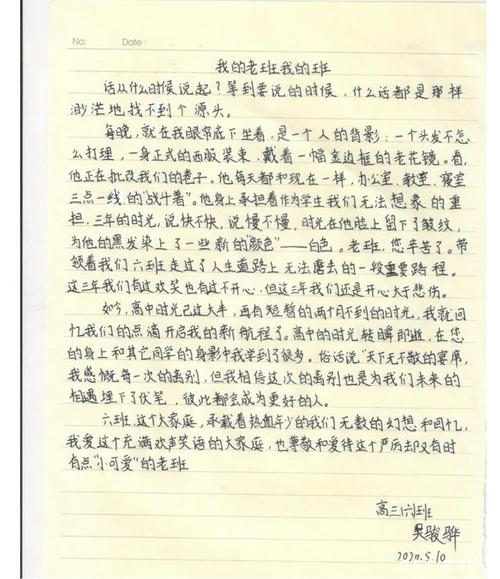 No:
Date:
我的老班我的班
话从什么时候说起？等到要说的时候，什么话都是那样
渺茫地找不到个源头。
每晚，就在我眼帘底下坐着，是一个人的背影：一个头发不怎
么打理，一身正式的西服装束，戴着一幅金边框的老花镜。看，
他正在批改我们的卷子。他每天都和现在一样，办公室、教室、寝室
三点一线的"战斗着"。他身上承担着作为学生我们无法想象的重
担，三年的时光，说快不快，说慢不慢，时光在他脸上留下了皱纹，
为他的黑发染上了一些新的"颜色"——白色。老班，您辛苦了。带
领着我们六班走过了人生道路上无法磨去的一段重要路程。
这三年我们有过欢笑也有过不开心，但这三年我们还是开心大于悲伤。
如今，高中时光已过大半，再有短暂的两个月不到的时光，我就回
忆我们的点滴开启我的新航程了。高中的时光转瞬即逝，在您
的身上和其它同学的身影中我学到了很多。俗话说"天下无不散的宴席，
我感慨每一次的离别，但我相信这次的离别也是为我们未来的
相遇埋下了伏笔，彼此都会成为更好的人。
六班，这个大家庭，承载着热血年少的我们无数的幻想和回忆，
我爱这个充满欢声笑语的大家庭，也尊敬和爱待这个严厉却又有时
有点"小可爱"的老班
高三六班
吴骏骅
2020.5.10